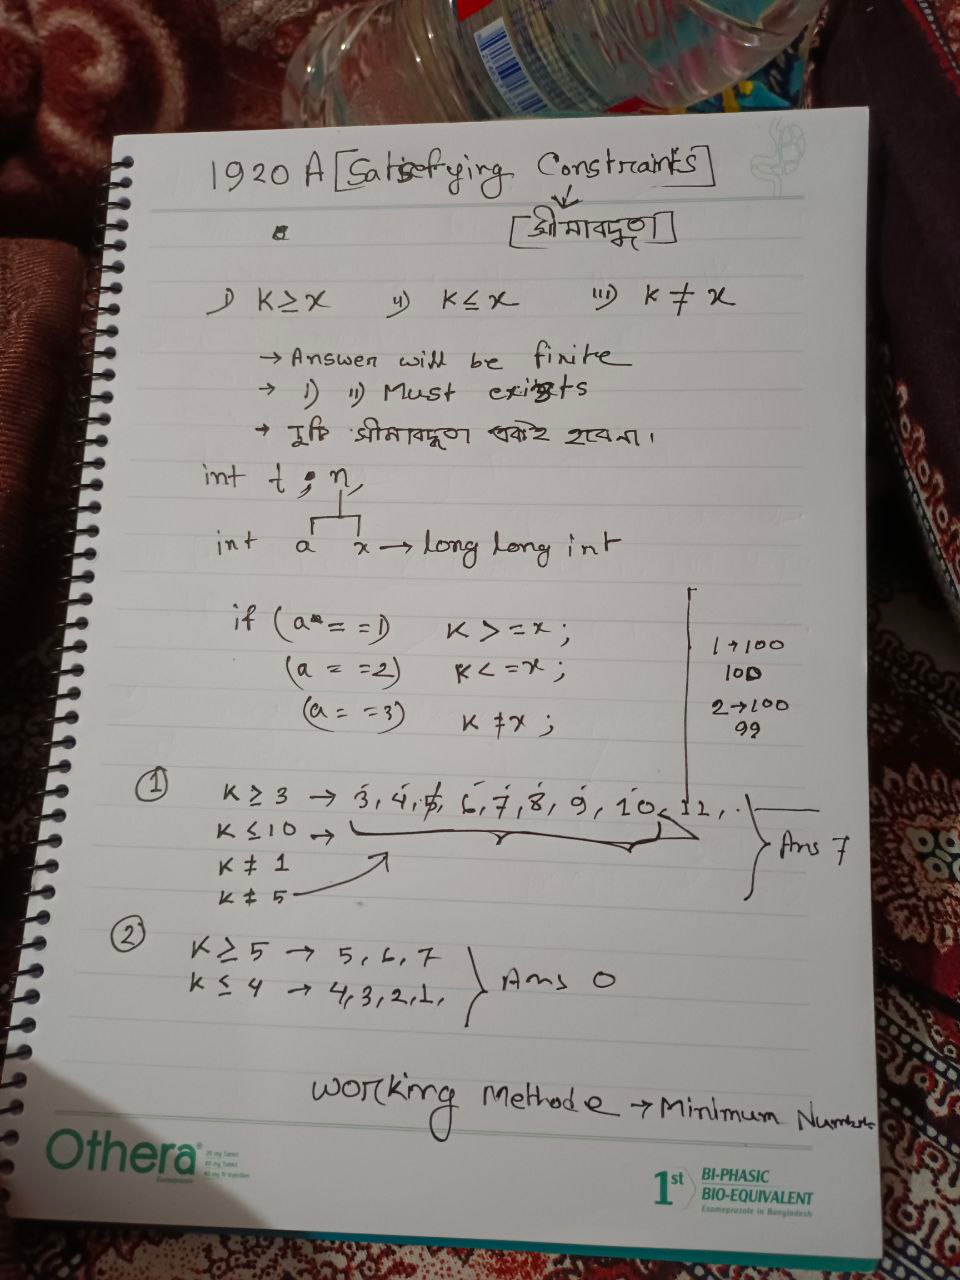 1920 A [Satisfying Constraints]
[সীমাবদ্ধতা]
i) K ≥ x ii) K ≤ x iii) K ≠ x
→ Answer will be finite
→ i) ii) Must exists
→ দুটি সীমাবদ্ধতা একই হবেনা।
int t; n,
int a x → long long int
if (a == 1) K >= x;
(a == 2) K <= x;
(a == 3) K ≠ x;
1→100
100
2→100
99
① K ≥ 3 → 3, 4, 5, 6, 7, 8, 9, 10, 11, .
K ≤ 10 →
K ≠ 1
K ≠ 5
Ans 7
② K ≥ 5 → 5, 6, 7
K ≤ 4 → 4, 3, 2, 1,
Ans 0
Working Methode → Minimum Numbers
Othera
20 mg Tablet
40 mg Tablet
40 mg IV Injection
Esomeprazole
1st BI-PHASIC
BIO-EQUIVALENT
Esomeprazole in Bangladesh